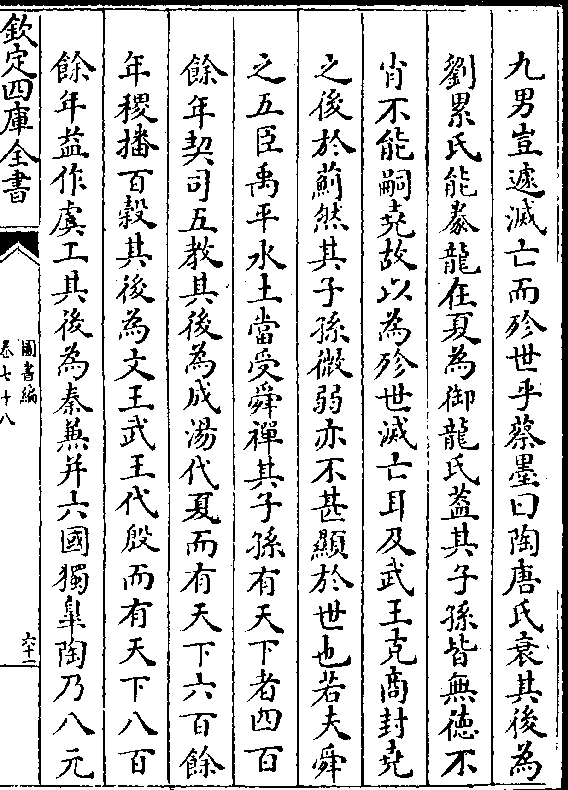 九男豈遽滅亡而殄世乎蔡墨曰陶唐氏衰其後為
劉累氏能豢龍在夏為御龍氏葢其子孫皆無德不
肖不能嗣堯故以為殄世滅亡耳及武王克商封堯
之後於薊然其子孫微弱亦不甚顯於世也若夫舜
之五臣禹平水土當受舜禪其子孫有天下者四百
餘年契司五教其後為成湯代夏而有天下六百餘
年稷播百穀其後為文王武王代殷而有天下八百
餘年益作虞工其後為秦兼并六國獨臯陶乃八元
欽定四庫全書
圖書編
卷七十八
六十二